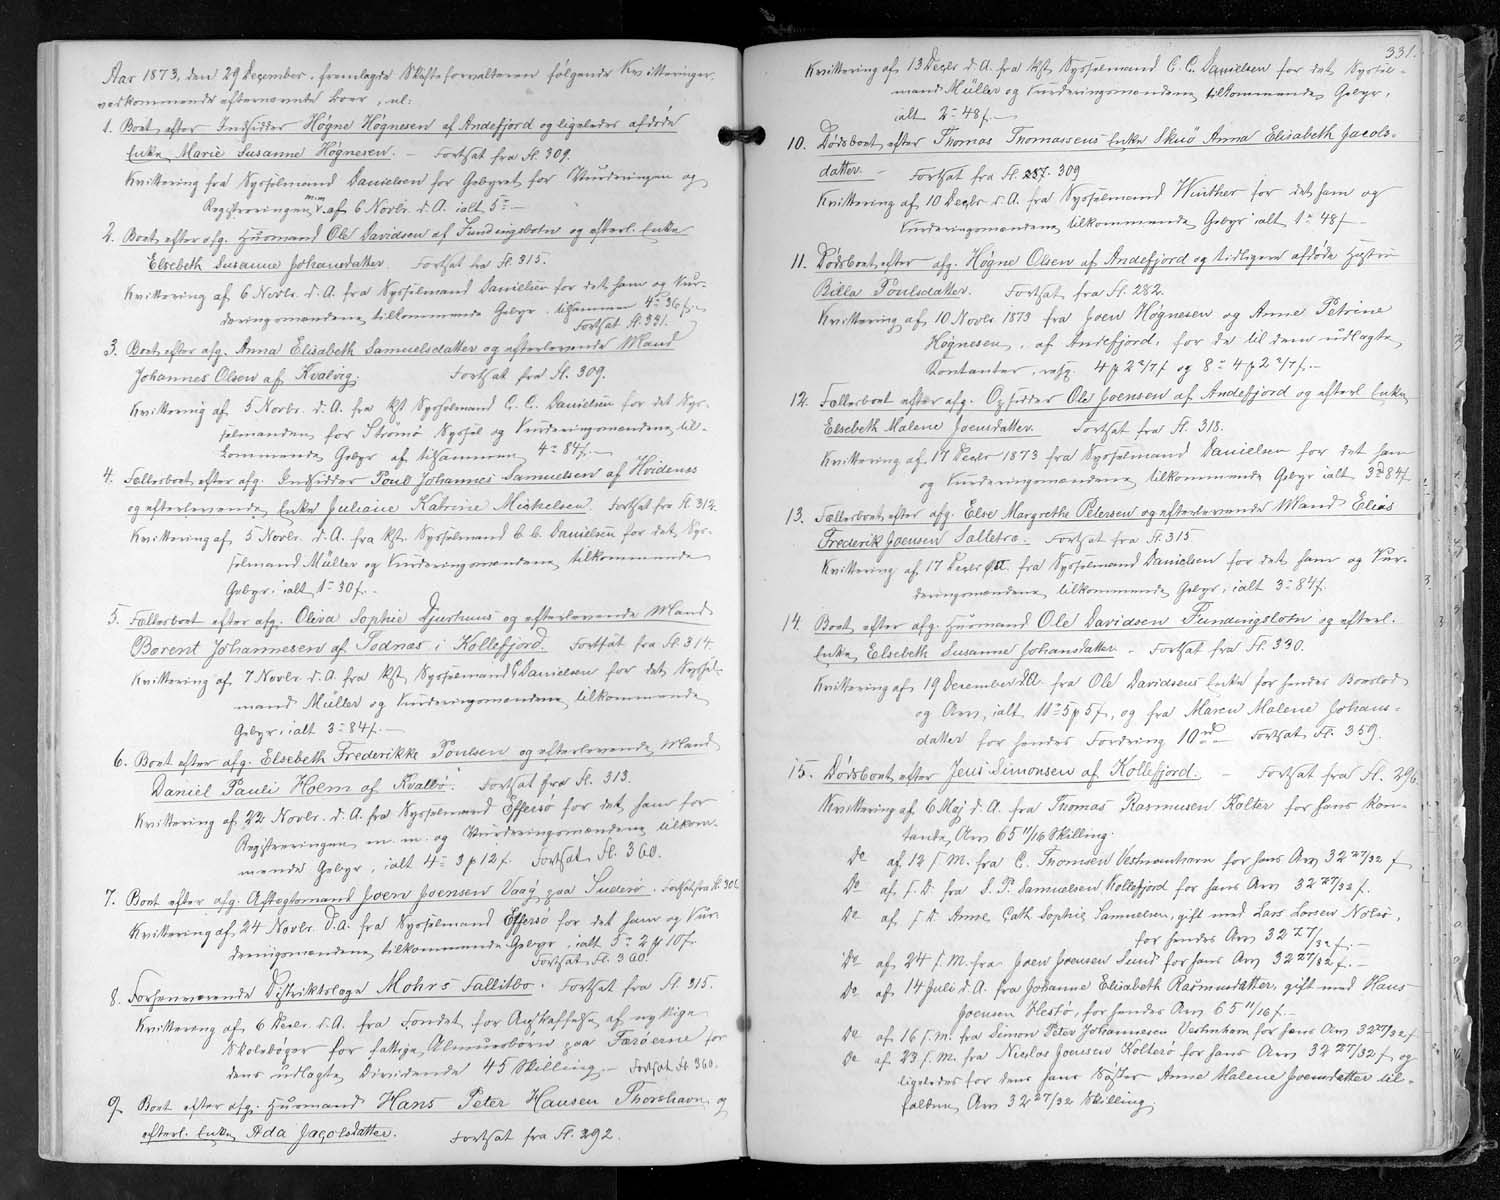 Aar 1873, den 29 December, fremlagde Skifteforvalteren følgende Kvitteringer
vedkommende efternævnte Boer, nl:
1. Boet efter Indsidder Høgne Høgnesen af Andefjord og ligeledes afdøde
Enke Marie Susanne Høgnesen. — Fortsat fra fl. 309.
Kvittering fra Sysselmand Danielsen for Gebyret for Vurderingen og
Registreringen m.m. af 6 Novbr. d. A. ialt 5 —
2. Boet efter afg. Huusmand Ole Davidsen af Fundingsbotn og efterl. Enke
Elsebeth Susanne Johansdatter. Fortsat fra fl. 315.
Kvittering af 6 Novbr. d. A. fra Sysselmand Danielsen for det ham og Vur-
deringsmændene tilkommende Gebyr, tilsammen 4 - 36 f.
Fortsat fl. 331.
3. Boet efter afg. Anna Elisabeth Samuelsdatter og efterlevende Mand
Johannes Olsen af Kvalvig. Fortsat fra fl. 309.
Kvittering af 5 Novbr. d. A. fra kst Sysselmand C. C. Danielsen for det Sys-
selmanden for Strømø Syssel og Vurderingsmændene til-
kommende Gebyr af tilsammen 4 - 84 f. —
4. Fællesboet efter afg. Indsidder Poul Johannes Samuelsen af Hvidenæs
og efterlevende Enke Juliane Katrine Mickelsen. Fortsat fra fl. 312.
Kvittering af 5 Novbr. d. A. fra kst. Sysselmand C. C. Danielsen for det Sys-
selmand Müller og Vurderingsmændene tilkommende
Gebyr, ialt 1 - 30 f. -
5. Fællesboet efter afg. Oliva Sophie Djurhuus og efterlevende Mand
Berent Johannesen af Todnæs i Kollefjord. Fortsat fra fl. 314.
Kvittering af 7 Novbr. d. A. fra kst Sysselmand Danielsen for det Syssel-
mand Müller og Vurderingsmændene tilkommende
Gebyr, ialt 3 - 84 f. —
6. Boet efter afg. Elsebeth Frederikke Poulsen og efterlevende Mand
Daniel Pauli Holm af Kvalbø. Fortsat fra fl. 313.
Kvittering af 22 Novbr. d. A. fra Sysselmand Effersø for det ham for
Registreringen m. m. og Vurderingsmændene tilkom-
mende Gebyr, ialt 4 - 3 p 12 f. Fortsat fl. 360.
7. Boet efter afg. Aftægtsmand Joen Joensen Vaag paa Suderø. Fortsat fra fl. 306
Kvittering af 24 Novbr. d. A. fra Sysselmand Effersø for det ham og Vur-
deringsmændene tilkommende Gebyr, ialt 5 - 2 p 10 f.
Fortsat fl. 360.
8. Forhenværende Distriktslæge Mohrs Fallitbo. Fortsat fra fl. 315.
Kvittering af 6 Decbr. d. A. fra Fondet for Anskaffelse af nyttige
Skolebøger for fattige Almuesbørn paa Færøerne for
dens udlagte Dividende 45 Skilling — Fortsat fl. 360.
9. Boet efter afg. Huusmand Hans Peter Hansen Thorshavn og
efterl. Enke Ada Jacobsdatter. Fortsat fra fl. 292.
331.
Kvittering af 13 Decbr d. A. fra kst Sysselmand C. C. Danielsen for det Syssel-
mand Müller og Vurderingsmændene tilkommende Gebyr,
ialt 2 - 48 f. —
10. Dødsboet efter Thomas Thomassens Enke Skuø Anna Elisabeth Jacobs-
datter. — Fortsat fra fl. 287. 309
Kvittering af 10 Decbr d. A. fra Sysselmand Winther for det ham og
Vurderingsmændene tilkommende Gebyr ialt 1 - 48 f —
11. Dødsboet efter afg. Høgne Olsen af Andefjord og tidligere afdøde Hustru
Billa Poulsdatter. Fortsat fra fl. 282.
Kvittering af 10 Novbr 1873 fra Joen Høgnesen og Anne Petrine
Høgnesen, af Andefjord, for de til dem udlagte
Contanter, resp. 4 p 2 2/7 f og 8 - 4 p 2 2/7 f. —
12. Fællesboet efter afg. Opsidder Ole Joensen af Andefjord og efterl Enke
Elsebeth Malene Joensdatter. Fortsat fra fl. 318.
Kvittering af 17 Decbr 1873 fra Sysselmand Danielsen for det ham
og Vurderingsmændene tilkommende Gebyr ialt 3 - 84 f
13. Fællesboet efter afg. Else Margrethe Petersen og efterlevende Mand Elias
Frederik Joensen Salletrø. Fortsat fra fl. 315
Kvittering af 17 Decbr d. A. fra Sysselmand Danielsen for det ham og Vur-
deringsmændene tilkommende Gebyr, ialt 3 - 84 f.
14. Boet efter afg. Huusmand Ole Davidsen Fundingsbotn og efterl.
Enke Elsebeth Susanne Johansdatter. — Fortsat fra fl. 330.
Kvittering af 19 December d. A. fra Ole Davidsens Enke for hendes Boeslod
og Arv, ialt 10 - 5 p 5 f, og fra Maren Malene Johans-
datter for hendes Fordring 10 — Fortsat fl. 359.
15. Dødsboet efter Jens Simonsen af Kollefjord. — Fortsat fra fl. 296.
Kvittering af 6 Maj d. A. fra Thomas Rasmusen Kolter for hans Kon-
tante Arv 65 11/16 Skilling.
Do af 12 s. M. fra C. Thomsen Vestmanhavn for hans Arv 32 27/32 f
Do af s. D. fra S. P. Samuelsen Kollefjord for hans Arv 32 27/32 f.
Do af s. D. Anne Cath Sophie Samuelsen, gift med Lars Larsen Nolsø,
for hendes Arv 32 27/32 f. —
Do af 24 s. M. fra Joen Joensen Sund for hans Arv 32 27/32 f. —
Do af 14 Juli d. A. fra Johanne Elisabeth Rasmusdatter, gift med Hans
Joensen Hestø, for hendes Arv 65 11/16 f. —
Do af 16 s. M. fra Simon Peter Johannesen Vestmhavn for hans Arv 32 27/32 f
Do af 23 s. M. fra Nicolas Joensen Kolterø for hans Arv 32 27/32 f og
ligeledes for dens hans Søster Anne Malene Joensdatter til-
faldne Arv 32 27/32 Skilling.